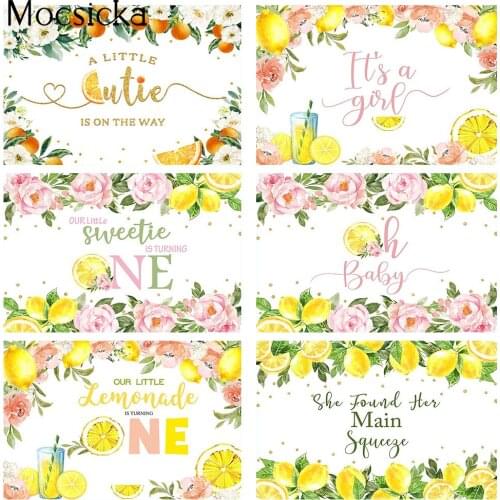 Mocsicka
A LITTLE
Cutie
IS ON THE WAY
It's a
girl
OUR Little
sweetie
IS TURNING
ONE
Oh
Baby
OUR LITTLE
Lemonade
IS TURNING
ONE
She Found Her
Main
Squeeze